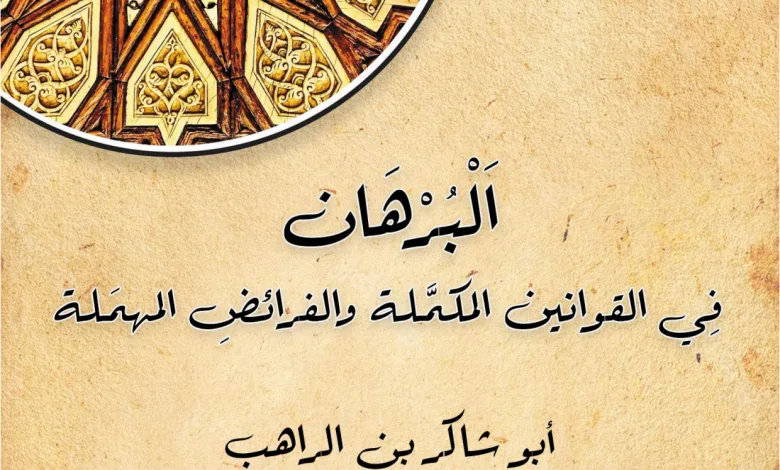 اَلْبُرْهَان
فِي القوانين المكمَّلة والفرائضِ المهمَلة
أبو شاكر بن الراهب